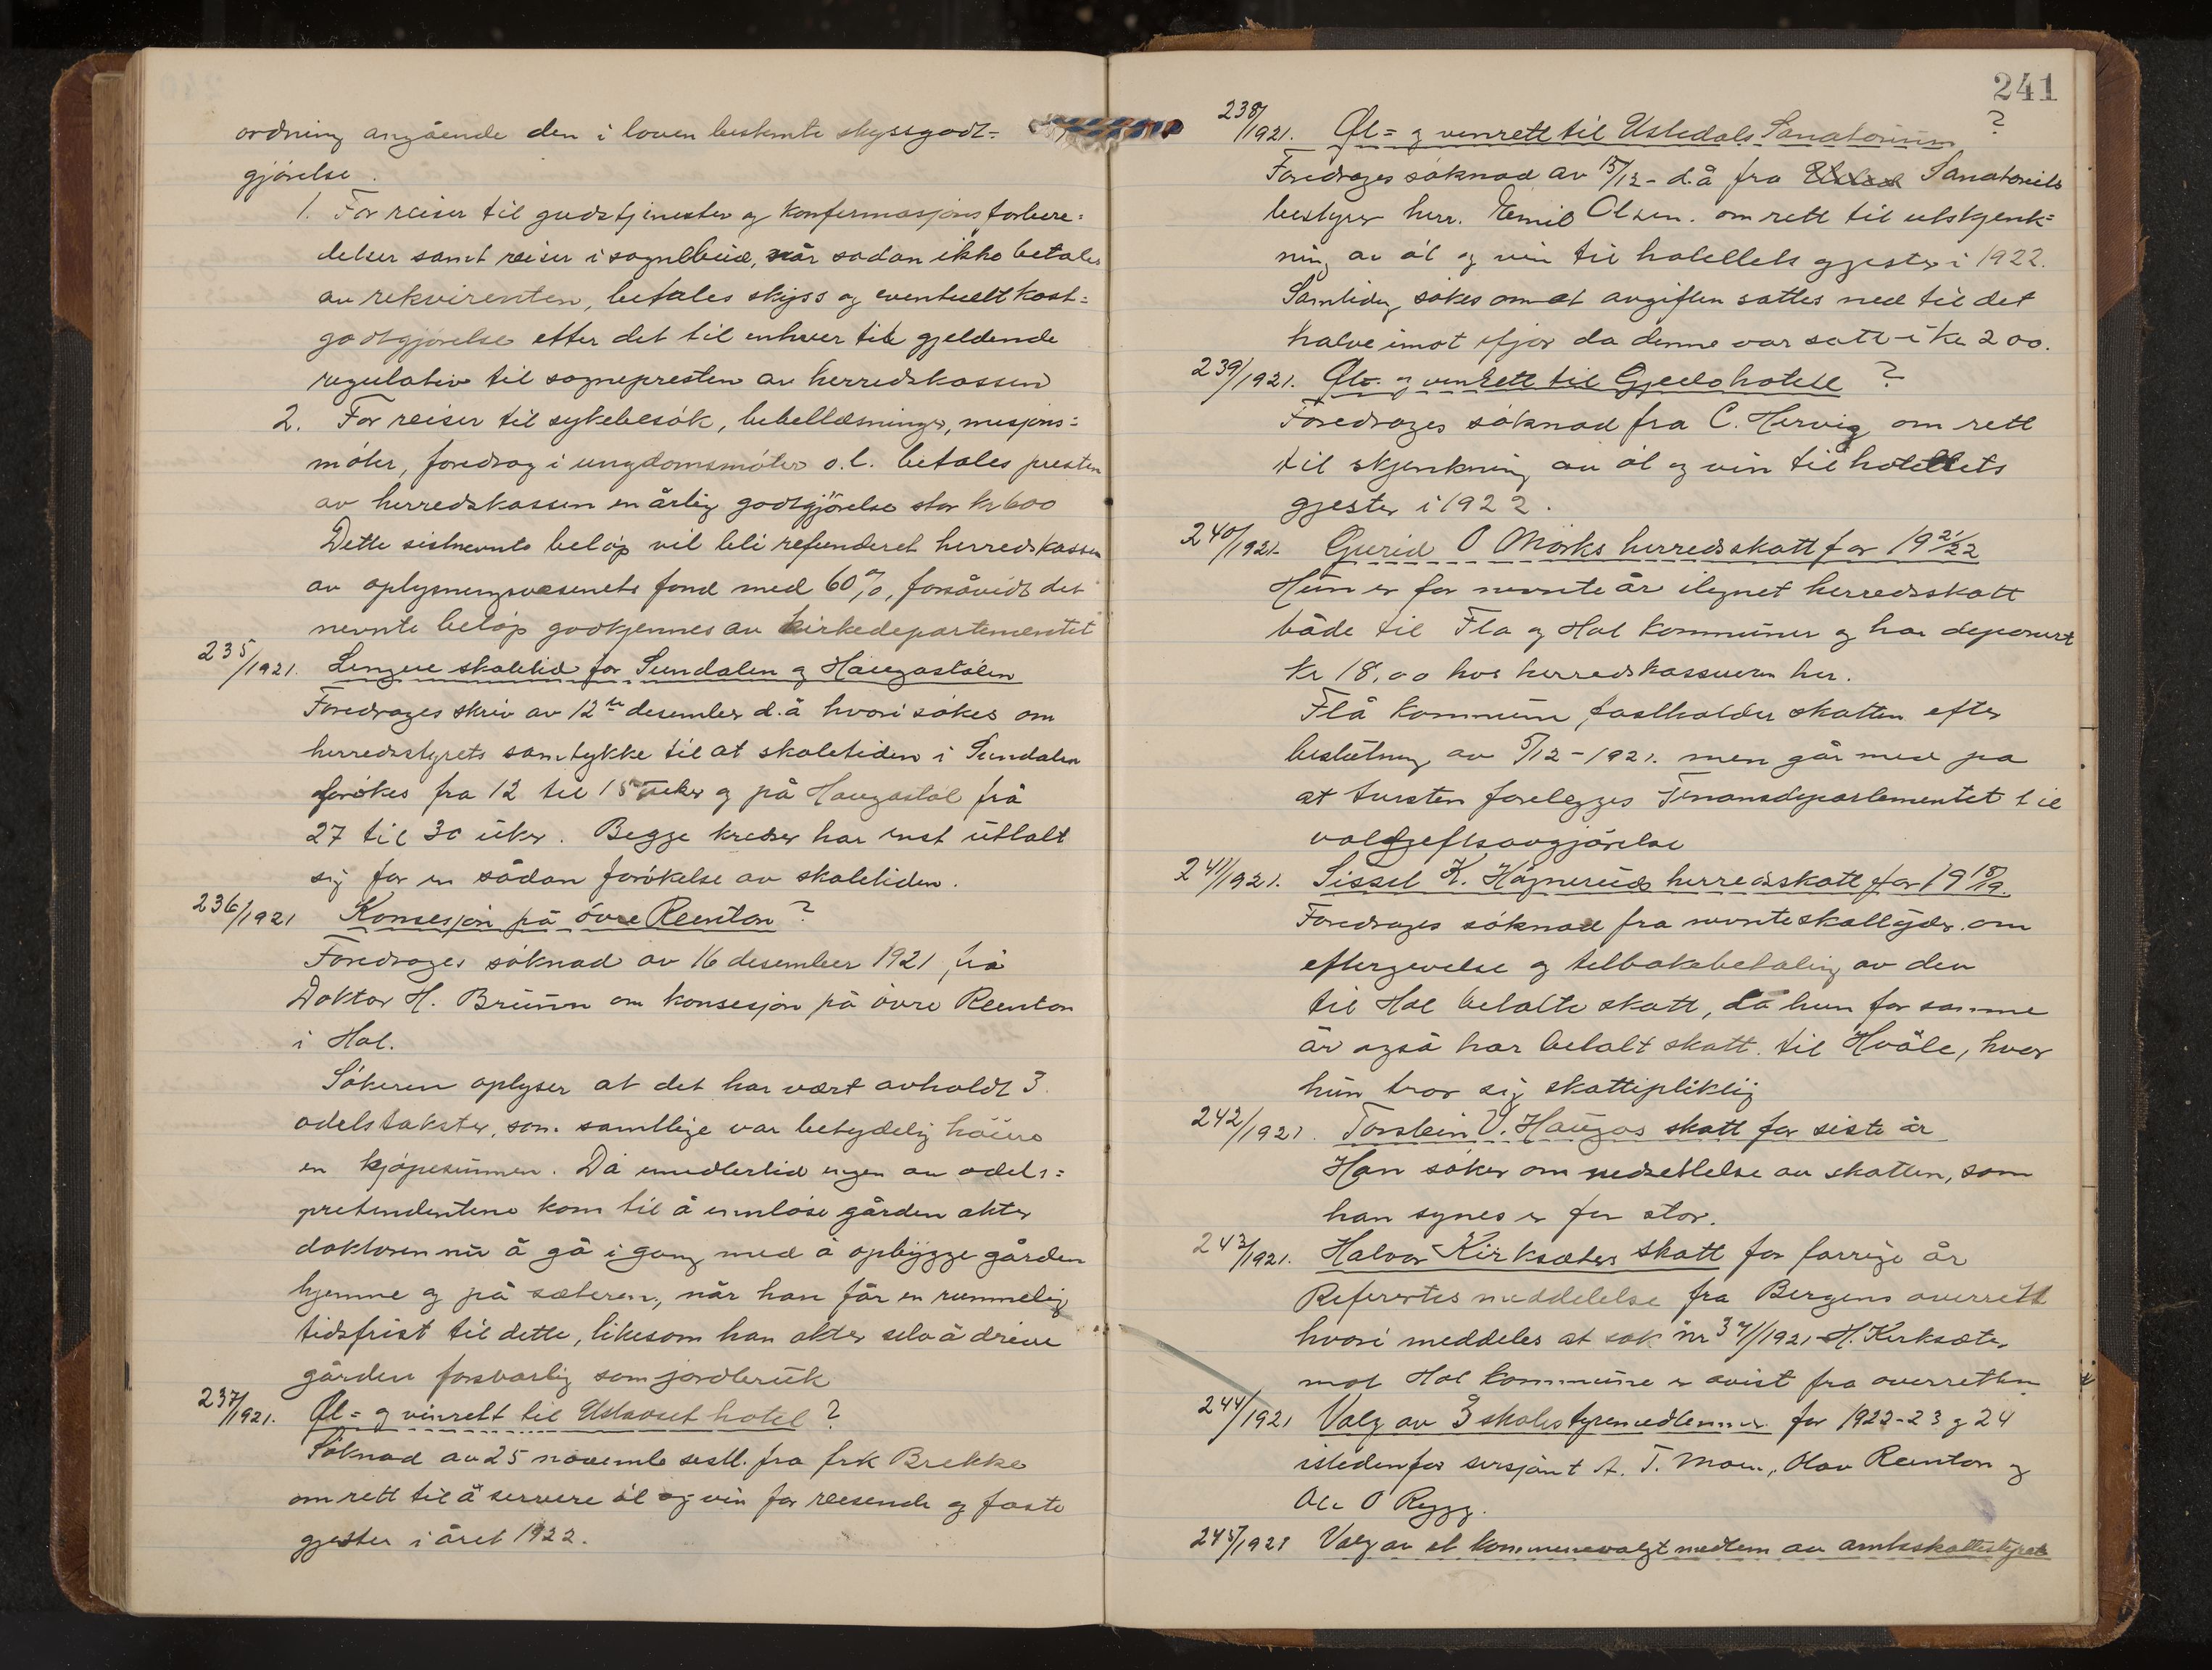 ordning angående den i loven bestemte skyssgodt=
gjörelse.
1. For reiser til gudstjenester og konfirmasjonsforbere=
delser samt reiser i sognebud, når sådan ikke betales
av rekvirenten, betales skyss og eventuelt kost=
godtgjörelse efter det til enhver tid gjeldende
regulativ til sognepresten av herredskassen
2. For reiser til sykebesök, bibellæsninger, misjons=
möter, foredrag i ungdomsmöter o.l. betales presten
av herredskassen en årlig godtgjörelse stor kr 600
Dette sistnevnte belöp vil bli refunderet herredskassen
av oplysningsvæsenets fond med 60%, forsåvidt det
nevnte belöp godkjennes av kirkedepartementet
235/1921. Lengere skoletid for Sundalen og Haugastölen
Foredrages skriv av 12te desember d.å hvori sökes om
herredsstyrets samtykke til at skoletiden i Sundalen
forökes fra 12 til 15 uker og på Haugastöl frå
27 til 30 uker. Begge kredser har enst uttalt
sig for en sådan forökelse av skoletiden.
236/1921 Konsesjon på övre Reenton?
Foredrages söknad av 16 desember 1921 frå
Doktor H. Bruun om konsesjon på övre Reenton
i Hol.
Sökeren oplyser at det har vært avholdt 3
odelstakster, som samtlige var betydelig höiere
en kjöpesummen. Då imedlertid ingen av odels=
pretendentene kom til å innlöse gården akter
doktoren nu å gå i gang med å opbygge gården
hjemme og på sæteren, når han får en rummelig
tidsfrist til dette, likesom han akter selv å drive
gården forsvarlig som jordbruk
237/1921. Øl= og vinrett til Ustaoset hotel?
Söknad av 25 novembr sistl. fra frk Brekke
om rett til å servere öl og vin for reisende og faste
gjester i året 1922.
241
238/1921. Øl= og vinrett til Ustedals Sanatorium?
Foredrages söknad av 15/12- d.å fra Sanatoriets
bestyrer herr. Emil Olsen. om rett til utskjenk=
ning av öl og vin til hotellets gjester i 1922.
Samtidig sökes om at avgiften sattes ned til det
halve imot ifjor da denne var satt i kr 200.
239/1921. Øl= og vinrett til Gjeilo hotell?
Foredrages söknad fra C. Hervig om rett
til skjenkning av öl og vin til hotellets
gjester i 1922.
240/1921- Gurid O Mörks herredsskatt for 1921/22
Hun er for nevnte år ilignet herredsskatt
både til Fla og Hol kommuner og har deponert
kr 18,00 hos herredskassereren her.
Flå kommune fastholder skatten efter
beslutning av 5/12-1921. men går med på
at tvisten forelegges Finansdepartementet til
voldgiftsavgjörelse
241/1921. Sissel K. Högneruds herredsskatt for 1918/19.
Foredrages söknad fra nevnte skattyder om
eftergivelse og tilbakebetaling av den
til Hol betalte skatt, då hun for samme
år også har betalt skatt til Hvåle, hvor
hun tror sig skattepliktig
242/1921. Torstein V. Haugos skatt for siste år
Han söker om nedsettelse av skatten, som
han synes er for stor.
243/1921. Halvor Kirksæters skatt for forrige år
Referertes meddelelse fra Bergens overrett
hvori meddeles at sak nr 37/1921 H. Kirksæter
mot Hol kommune er avist fra overretten
244/1921 Valg av 3 skolestyremedlemmer for 1922-23 og 24
istedenfor sersjant A. T. Moen, Olav Reenton og
Ole O Rygg.
245/1921 Valg av et kommunevalgt medlem av amtsskattestyret